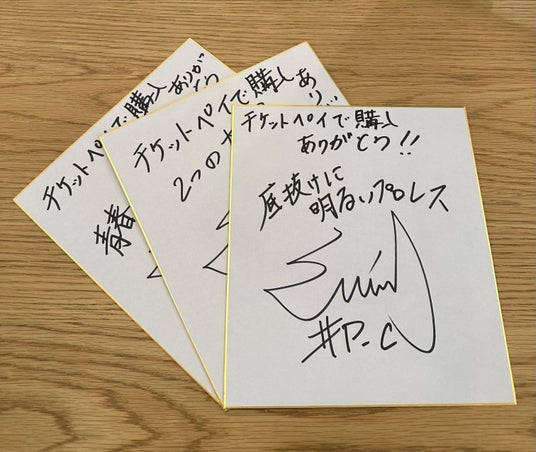 チケットペイで購入
ありがとう!!
底抜けに
明るいプロレス
#P.C
チケットペイで購入
あり
2つの
チケットペイで購入
ありがとう
青春